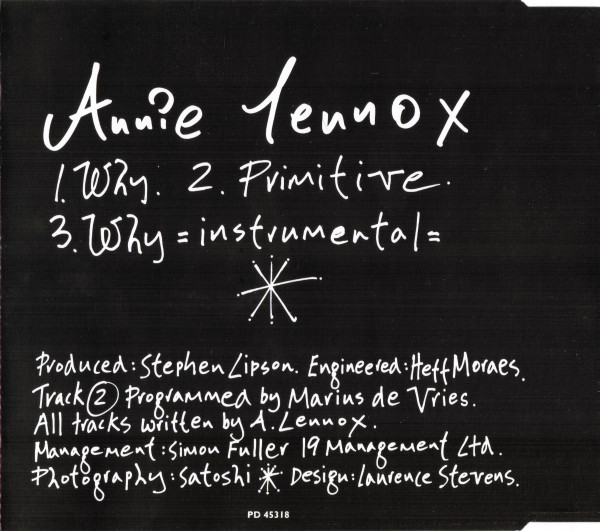 Annie Lennox
1. Why. 2. Primitive.
3. Why = instrumental =
Produced: Stephen Lipson. Engineered: Heff Moraes.
Track ② Programmed by Marius de Vries.
All tracks written by A. Lennox.
Management: Simon Fuller 19 Management Ltd.
Photography: Satoshi * Design: Laurence Stevens.
PD 45318